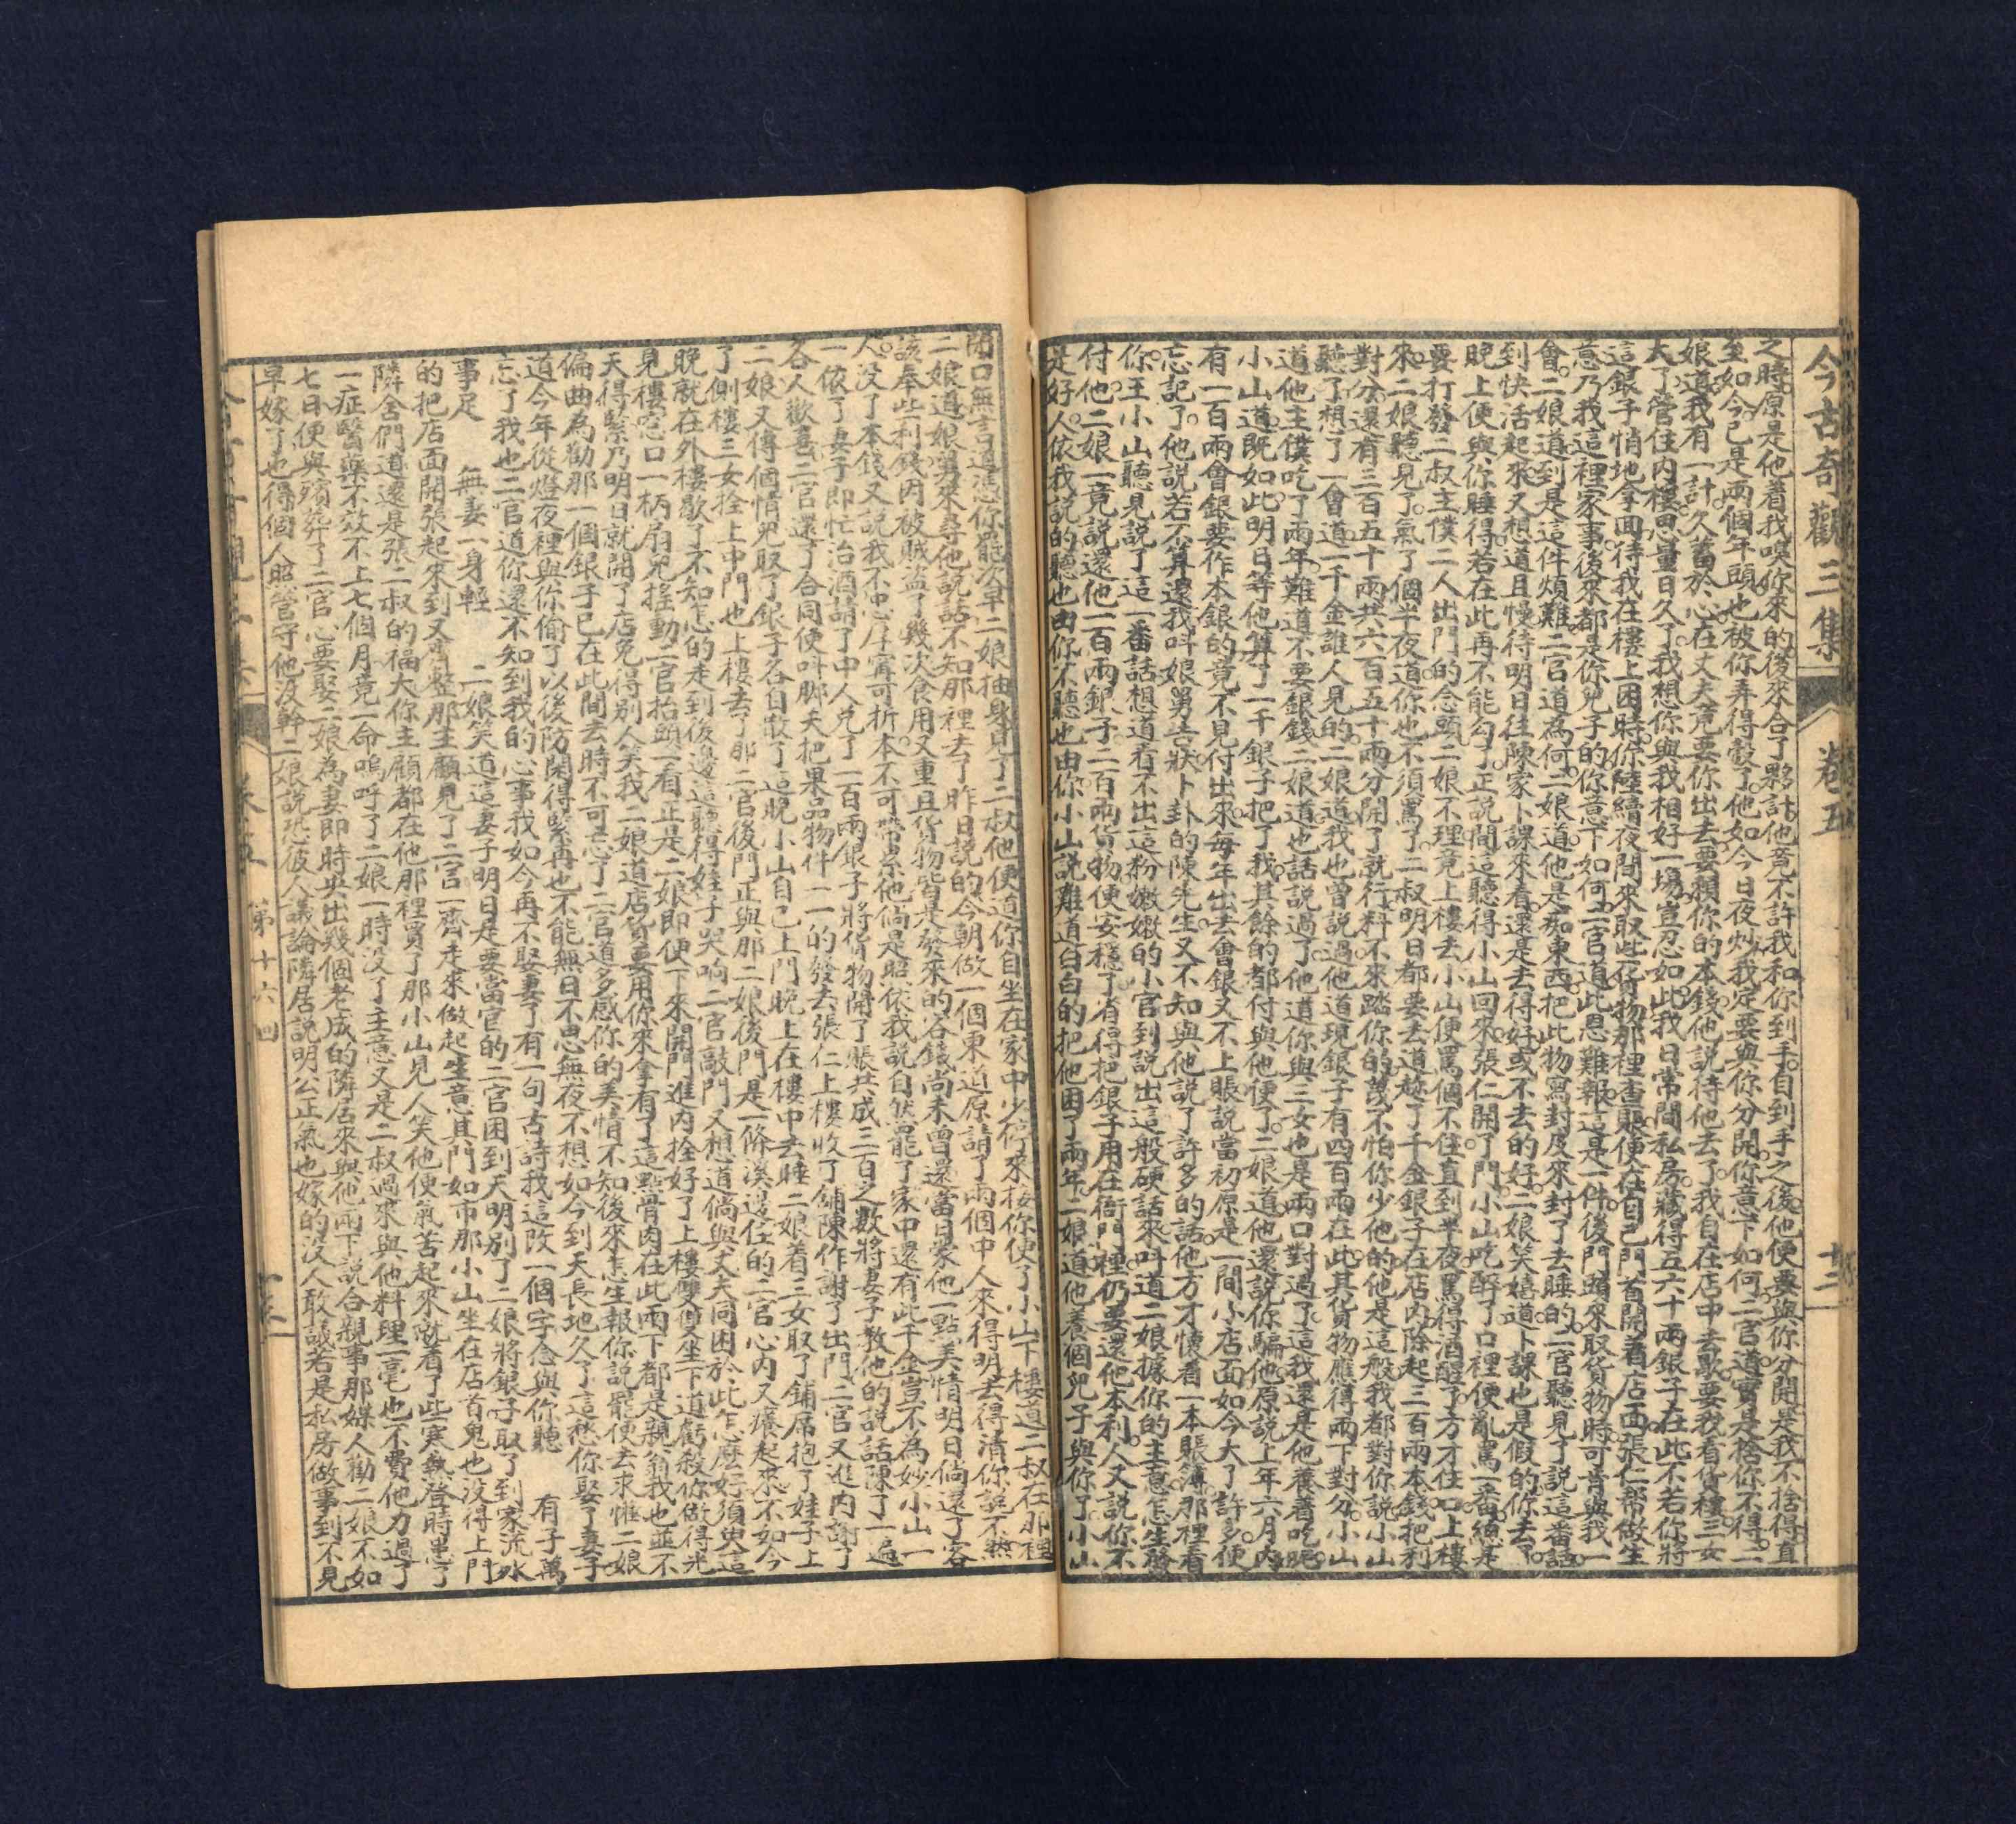 今古奇觀三集 卷五 十二
之時原是他着我喚你來的後來合了夥計他竟不許我和你到手自到手之後他便要與你分開是我不捨得直
至如今已是兩個年頭也被你弄得彀了他如今日夜炒我定要與你分開你意下如何二官道實是捨你不得二
娘道我有一計久蓄於心在丈夫竟要你出去要賴你的本錢他說待他去了我自在店中去歇要我看貨樓三女
大了管住內樓思量日久了我想你與我相好一場豈忍如此我日常間私房藏得五六十兩銀子在此不若你將
這銀子悄地拿回待我在樓上困時你陸續夜間來取些貨物那裡查賬便在自己門首開着店面張仁帮做生
意乃我這裡家事後來都是你兒子的你意下如何二官道此恩難報這是一件後門頭來取貨物時可肯與我一
會二娘道到是這件煩難二官道為何二娘道他是痴東西把此物寫封及來封了去睡的二官聽見了說這番話
到快活起來又想道且慢待明日往陳家卜課來看還是去得好或不去的好二娘笑嬉道卜課也是假的你去了
晚上便與你睡得若在此再不能勾了正說間這聽得小山回來張仁開了門小山吃醉了口裡便亂罵一番總是
要打發二叔主僕二人出門的念頭二娘不理竟上樓去小山便罵個不住直到半夜罵得酒醒了方才住口上樓
來二娘聽見了氣了個半夜道你也不須罵了二叔明日都要去道趂了千金銀子在店內除起三百兩本錢把利
對分還有三百五十兩共六百五十兩分開了就行料不來踏你的萬不怕你少他的他是這般我都對你說小山
聽了想了一會道一千金誰人見的二娘道我也曾說過他道現銀子有四百兩在此其貨物應得兩下對分小山
道他主僕吃了兩年難道不要銀錢二娘道也話說過了他道你與三女也是兩口對過了這我還是他養着吃呢
小山道既如此明日等他算了二千銀子把了我其餘的都付與他便了二娘道他還說你騙他原說上年六月內
有一百兩會銀要作本銀的竟不見付出來每年出去會銀又不上賬說當初原是一間小店面如今大了許多便
忘記了他說若不算還我叫娘舅告狀卜卦的陳先生又不知與他說了許多的話他方才懷着一本賬簿那裡看
你王小山聽見說了這一番話想道看不出這粉嫩嫩的小官到說出這般硬話來叫道二娘據你的主意怎生發
付他二娘一竟說還他一百兩銀子二百兩貨物便安穩了省得把銀子用在衙門裡仍要還他本利人又說你不
是好人依我說的聽也由你不聽也由你小山說難道白白的把他困了兩年二娘道他養個兒子與你了小山
閉口無言道憑你罷次早二娘抽身見了二叔他便道你自坐在家中少停來接你便了小山下樓道二叔在那裡
二娘道娘舅來尋他說話不知那裡去了昨日說的今朝做一個東道原請了兩個中人來得明去得清你說不然
該奉些利錢因被賊盗了幾次食用又重且貨物皆是發來的谷錢尚未曾還當日蒙他一點美情明日倘還了客
人沒了本錢又說我不忠厚寧可折本不可帶累他倘是昭依我說自然罷了家中還有此千金豈不為妙小山一
一依了妻子即忙治酒請了中人兌了一百兩銀子將貨物開了賬共成三百之數將妻子教他的說話陳了一遍
各人歡喜二官還了合同便叫脚夫把果品物件一一的發去張仁上樓收了鋪陳作謝了出門二官又進內謝了
二娘又傳個情兒取了銀子各自散了這晚小山自己上門晚上在樓中去睡二娘着三女取了鋪席抱了娃子上
了側樓三女拴上中門也上樓去了那二官後門正與那二娘後門是一條溪邊住的二官心內又癢起來不如今
晚就在外樓歇了不知怎的走到後邊這聽得娃子哭响二官敲門又想道倘與丈夫同困於此乍麽好須臾這
見樓窓口一柄扇兒搖動二官抬頭一看正是二娘即便下來開門進內拴好了上樓雙雙坐下道虧殺你做得光
天得緊乃明日就開了店免得別人笑我二娘道店貨要用你來拿有了這點骨肉在此兩下都是親翁我也並不
偏曲為勸那一個銀子已在此間去時不可忘了二官道多感你的美情不知後來怎生報你說罷便去求懽二娘
道今年從燈夜裡與你偷了以後防閑得緊再也不能無日不思無夜不想如今到天長地久了這愁你娶了妻子
忘了我也二官道你還不知到我的心事我如今再不娶妻了有一句古詩找這改一個字念與你聽　有子萬
事足　無妻一身輕　二娘笑道這妻子明日是要當官的二官困到天明別了二娘將銀子取了到家流水
的把店面開張起來到又齊整那主顧見了二官一齊走來做起生意其門如市那小山坐在店首鬼也沒得上門
隣舍們道還是張二叔的福大你主顧都在他那裡買了那小山見人笑他便氣苦起來就着了些寒熱登時患了
一症醫藥不效不上七個月竟一命嗚呼了二娘一時沒了主意又是二叔過來與他料理一毫也不費他力過了
七日便與殯葬了二官心要娶二娘為妻即時央出幾個老成的隣居來與他兩下說合親事那媒人勸二娘不如
早嫁了也得個人照管守他沒幹二娘說恐彼人議論隣居說明公正氣也嫁的沒人敢議若是私房做事到不見
卷五 第十六回